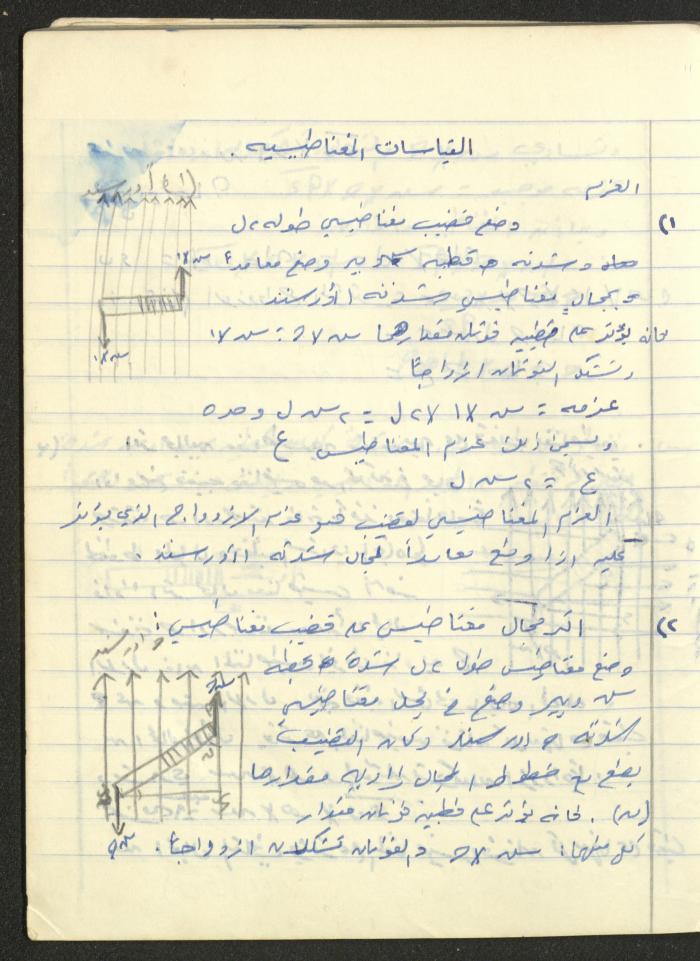 القياسات المغناطيسية .
العزم
(١ وضع قضيب مغناطيسي طوله ٢ ل
وشدته قطبه س ويبر وضع معامداً
مجال مغناطيسي شدته ١ أورستد
فانه يؤثر على قطبيه قوتان مقدارهما س × ھ = س × ١
وتشكل القوتان ازدواجاً
عزمه = س × ١ × ٢ ل = ٢ س ل وحدة
ويسمى العزم المغناطيسي ع
ع = ٢ س ل
العزم المغناطيسي لقضيب هو عزم الازدواج الذي يؤثر
عليه اذا وضع معامداً لمجال شدته ١ أورستد .
(٢ اثر مجال مغناطيسي على قضيب مغناطيسي :
وضع مغناطيس طول ٢ ل شدة قطبه
س ويبر وضع في مجال مغناطيسي
شدته ھ اورستد وكان القضيب
يصنع مع خطوط المجال زاوية مقدارها
(ى) . فانه يؤثر على قطبيه قوتان مقدار
كل منهما : س × ھ والقوتان تشكلان ازدواجاً .
(١) أورستد
س × ١
س × ١
ھ اورستد
س ھ
س ھ